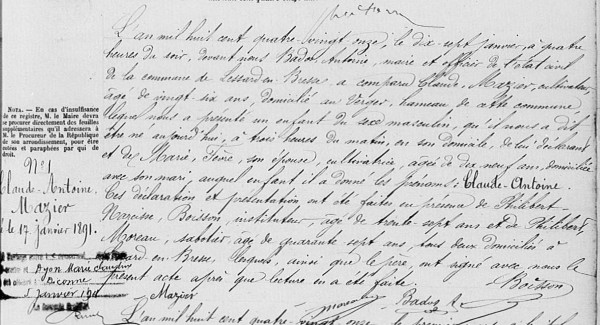 L'an mil huit cent quatre-vingt onze, le dix-sept janvier, à quatre
heures du soir, devant nous Badot, Antoine, maire et officier de l'état civil
de la commune de Lessard-en-Bresse a comparu Claude, Mazier, cultivateur,
âgé de vingt-six ans, domicilié au Verger, hameau de cette commune
lequel nous a présenté un enfant du sexe masculin, qu'il nous a dit
être né aujourd'hui, à trois heures du matin, en son domicile, de lui déclarant
et de Marie, son épouse, cultivatrice, âgée de dix neuf ans, domiciliée
avec son mari, auquel enfant il a donné les prénoms: Claude-Antoine.
Ces déclaration et présentation ont été faites en présence de Philibert-
Narcisse, Boisson, instituteur, âgé de trente-sept ans et de Philibert,
Moreau, sabotier, âgé de quarante sept ans, tous deux domiciliés à
Lessard-en-Bresse, lesquels, ainsi que le père, ont signé avec nous le
présent acte après que lecture en a été faite.
Boisson
Mazier
Moreau
Badot A
L'an mil huit cent quatre-vingt onze, le
NOTA. — En cas d'insuffisance
de ce registre, M. le Maire devra
se procurer directement des feuilles
supplémentaires qu'il adressera à
M. le Procureur de la République
de son arrondissement, pour être
cotées et paraphées par qui de
droit.
N° 1
Claude-Antoine,
Mazier
le 17 janvier 1891.
et Ayon Marie
Janvier